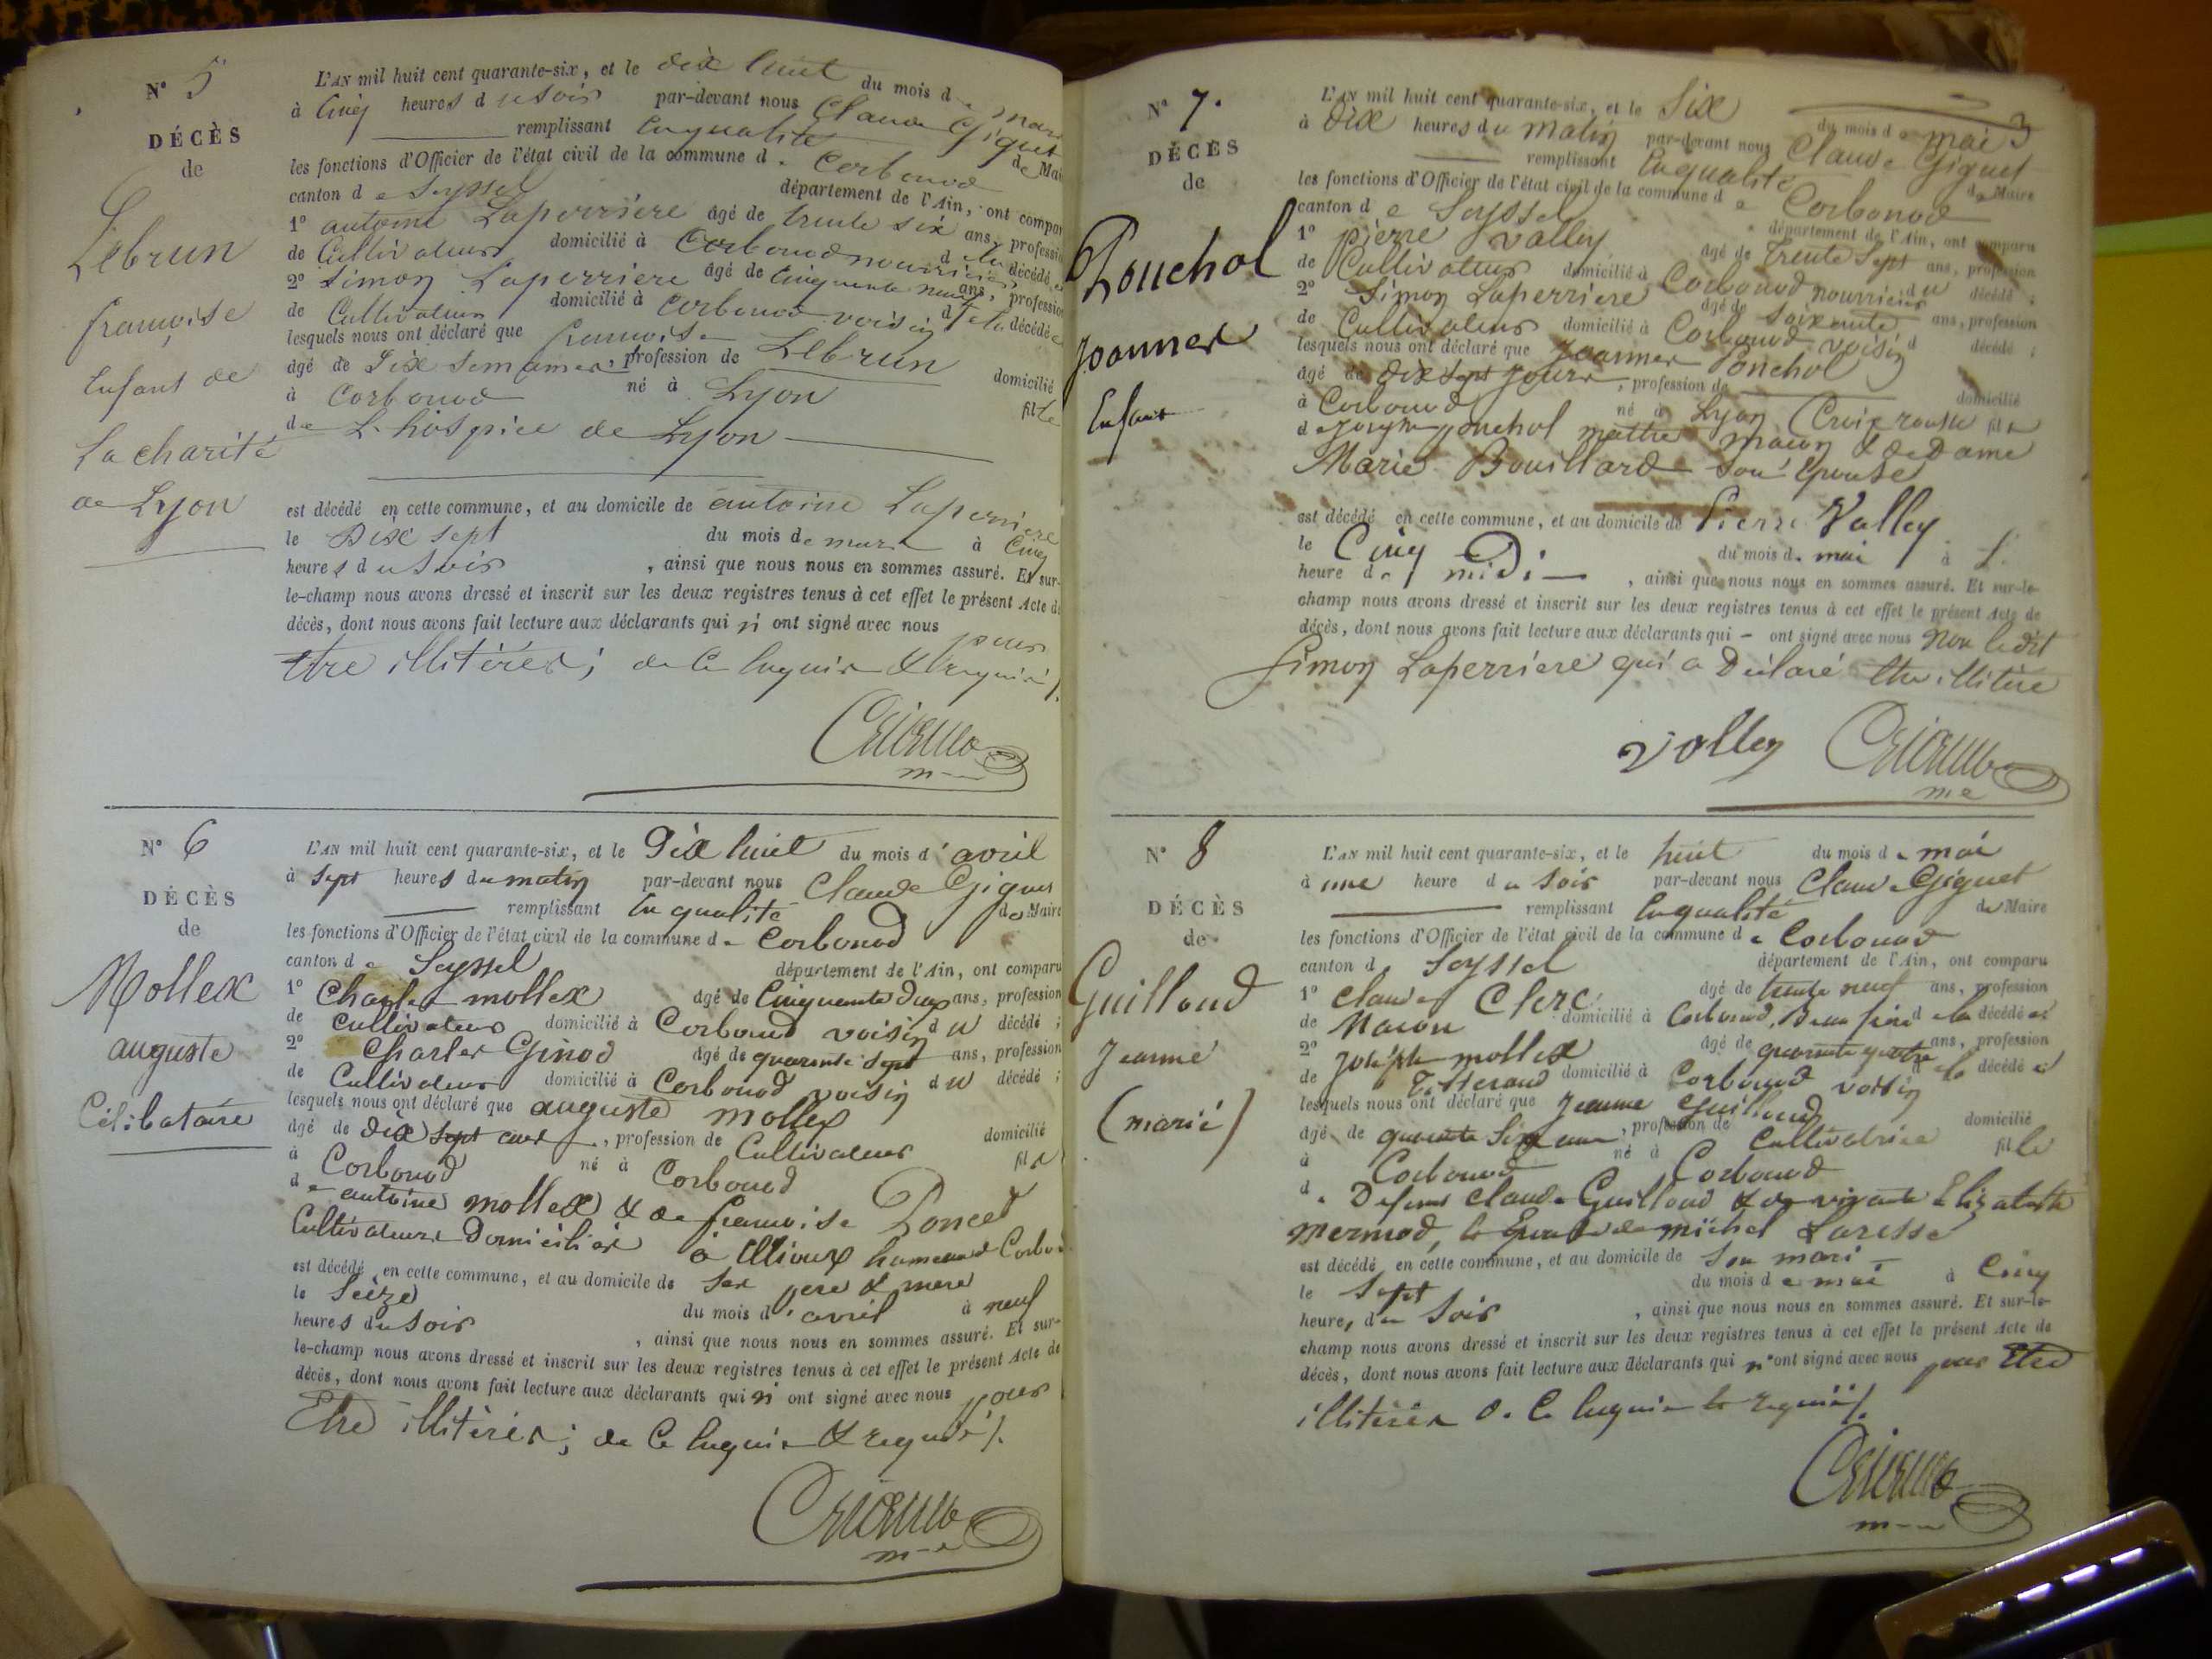 N° 5
DÉCÈS
de
Lebrun
françoise
Enfant de
La charité
de Lyon
L'AN mil huit cent quarante-six, et le dix huit du mois de mars
à Cinq heures du soir par-devant nous Claude Giguet
remplissant En qualité de Mai
les fonctions d'Officier de l'état civil de la commune de Corbonod
canton de Seyssel département de l'Ain, ont compar
1° antoine Laperriere âgé de trente six ans, professio
de Cultivateur domicilié à Corbonod nourricier de la décédée
2° Simon Laperriere âgé de Cinquante neuf ans, profession
de Cultivateur domicilié à Corbonod voisin de la décédée
lesquels nous ont déclaré que françoise Lebrun
âgé de Dix semaines, profession de domicilié
à Corbonod né à Lyon fille
de L'hospice de Lyon
est décédé en cette commune, et au domicile de antoine Laperriere
le Dix sept du mois de mars à Cinq
heures du soir, ainsi que nous nous en sommes assuré. Et sur-
le-champ nous avons dressé et inscrit sur les deux registres tenus à cet effet le présent Acte de
décès, dont nous avons fait lecture aux déclarants qui n' ont signé avec nous pour
être illitérés; de ce Enquis & requis /.
N° 6
DÉCÈS
de
Mollex
auguste
Célibataire
L'AN mil huit cent quarante-six, et le Dix huit du mois d'avril
à sept heures du matin par-devant nous Claude Giguet
remplissant En qualité de Maire
les fonctions d'Officier de l'état civil de la commune de Corbonod
canton de Seyssel département de l'Ain, ont comparu
1° Charles mollex âgé de Cinquante deux ans, profession
de Cultivateur domicilié à Corbonod voisin du décédé;
2° Charles Ginod âgé de quarante sept ans, profession
de Cultivateur domicilié à Corbonod voisin du décédé;
lesquels nous ont déclaré que auguste mollex
âgé de dix sept ans, profession de Cultivateur domicilié
à Corbonod né à Corbonod fils
de antoine mollex & de françoise Poncet
Cultivateurs Domiciliés à hameau de Corbonod
est décédé en cette commune, et au domicile de ses pere & mere
le Seize du mois d'avril à neuf
heures du soir, ainsi que nous nous en sommes assuré. Et sur-
le-champ nous avons dressé et inscrit sur les deux registres tenus à cet effet le présent Acte de
décès, dont nous avons fait lecture aux déclarants qui n' ont signé avec nous pour
Etre illitérés; de ce Enquis & requis /.
N° 7.
DÉCÈS
de
Ponchol
Joannes
Enfant
3
L'AN mil huit cent quarante-six, et le Six du mois de mai
à dix heures du matin par-devant nous Claude Giguet
remplissant En qualité de Maire
les fonctions d'Officier de l'état civil de la commune de Corbonod
canton de Seyssel département de l'Ain, ont comparu
1° pierre Valley âgé de trente sept ans, profession
de Cultivateur domicilié à Corbonod nourricier du décédé;
2° Simon Laperriere âgé de soixante ans, profession
de Cultivateur domicilié à Corbonod voisin d décédé;
lesquels nous ont déclaré que Joannes Ponchol
âgé de dix sept jours, profession de domicilié
à Corbonod né à Lyon Croix rousse fils
de Joseph ponchol maître maçon & de Dame
Marie Bouillard son Epouse
est décédé en cette commune, et au domicile de Pierre Valley
le Cinq du mois de mai à
heure de midi, ainsi que nous nous en sommes assuré. Et sur-le-
champ nous avons dressé et inscrit sur les deux registres tenus à cet effet le présent Acte de
décès, dont nous avons fait lecture aux déclarants qui ont signé avec nous Non ledit
Simon Laperriere qui a Déclaré Etre illitéré
Valley
N° 8
DÉCÈS
de
Guilloud
Jeanne
(marié)
L'AN mil huit cent quarante-six, et le huit du mois de mai
à une heure du soir par-devant nous Claude Giguet
remplissant En qualité de Maire
les fonctions d'Officier de l'état civil de la commune de Corbonod
canton de Seyssel département de l'Ain, ont comparu
1° Claude Clerc âgé de trente neuf ans, profession
de Macon domicilié à Corbonod, Beau frere de la décédée;
2° Joseph mollex âgé de quarante quatre ans, profession
de Tisserand domicilié à Corbonod voisin de la décédée;
lesquels nous ont déclaré que Jeanne Guilloud
âgé de quarante Six ans, profession de Cultivatrice domicilié
à Corbonod né à Corbonod fille
de Defunt Claude Guilloud & de vivante Elizabeth
Mermod, Epouse de michel Laresse
est décédé en cette commune, et au domicile de Son mari
le Sept du mois de mai à Cinq
heures du Soir, ainsi que nous nous en sommes assuré. Et sur-le-
champ nous avons dressé et inscrit sur les deux registres tenus à cet effet le présent Acte de
décès, dont nous avons fait lecture aux déclarants qui n'ont signé avec nous pour Etre
illitérés de ce Enquis & requis /.